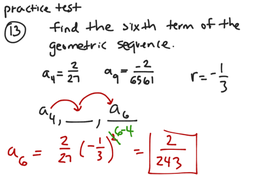 practice test
13 find the sixth term of the
geometric sequence.
a₄ = 2/27 a₉ = -2/6561 r = -1/3
a₄, __, a₆
a₆ = 2/27 (-1/3)^6-4 = 2/243